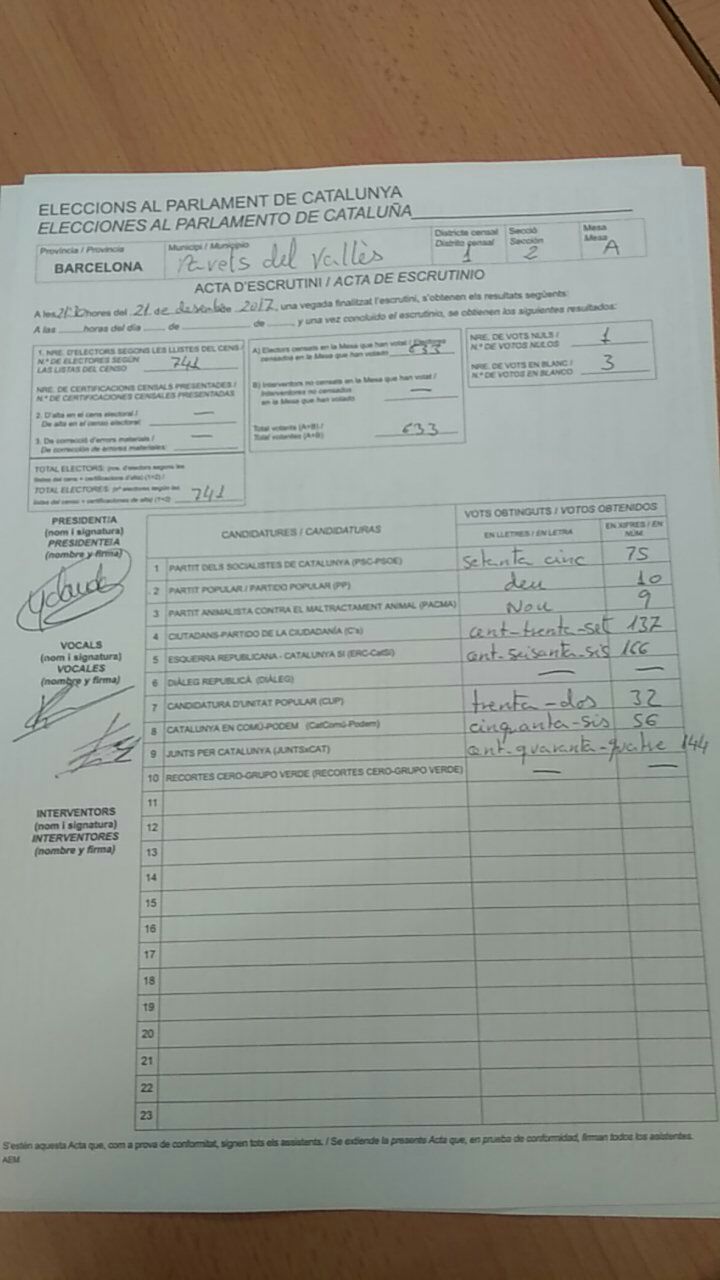 ELECCIONS AL PARLAMENT DE CATALUNYA
ELECCIONES AL PARLAMENTO DE CATALUÑA
Província / Provincia
BARCELONA
Municipi / Municipio
del Vallès
Districte censal
Distrito censal
1
Secció
Sección
2
Mesa
Mesa
A
ACTA D'ESCRUTINI / ACTA DE ESCRUTINIO
A les hores del 21 de desembre 2017, una vegada finalitzat l'escrutini, s'obtenen els resultats següents:
A las horas del día de de , y una vez concluido el escrutinio, se obtienen los siguientes resultados:
1. NRE. D'ELECTORS SEGONS LES LLISTES DEL CENS /
N.º DE ELECTORES SEGÚN
LAS LISTAS DEL CENSO 741
NRE. DE CERTIFICACIONS CENSALS PRESENTADES /
N.º DE CERTIFICACIONES CENSALES PRESENTADAS
2. D'alta en el cens electoral / —
De alta en el censo electoral:
3. De correcció d'errors materials / —
De corrección de errores materiales:
TOTAL ELECTORS: (nre. d'electors segons les
llistes del cens + certificacions d'alta) (1+2) /
TOTAL ELECTORES: (nº electores según las
listas del censo + certificaciones de alta) (1+2) 741
A) Electors censats en la Mesa que han votat / Electores
censados en la Mesa que han votado 633
B) Interventors no censats en la Mesa que han votat /
Interventores no censados
en la Mesa que han votado —
Total votants (A+B) /
Total votantes (A+B) 633
NRE. DE VOTS NULS /
N.º DE VOTOS NULOS 1
NRE. DE VOTS EN BLANC /
N.º DE VOTOS EN BLANCO 3
PRESIDENT/A
(nom i signatura)
PRESIDENTE/A
(nombre y firma)
VOCALS
(nom i signatura)
VOCALES
(nombre y firma)
INTERVENTORS
(nom i signatura)
INTERVENTORES
(nombre y firma)
CANDIDATURES / CANDIDATURAS
VOTS OBTINGUTS / VOTOS OBTENIDOS
EN LLETRES / EN LETRA
EN XIFRES / EN
NÚM.
1 PARTIT DELS SOCIALISTES DE CATALUNYA (PSC-PSOE) setanta cinc 75
2 PARTIT POPULAR / PARTIDO POPULAR (PP) deu 10
3 PARTIT ANIMALISTA CONTRA EL MALTRACTAMENT ANIMAL (PACMA) Nou 9
4 CIUTADANS-PARTIDO DE LA CIUDADANÍA (C's) cent-trenta-set 137
5 ESQUERRA REPUBLICANA - CATALUNYA SÍ (ERC-CatSí) cent-seisanta-sis 166
6 DIÀLEG REPUBLICÀ (DIÀLEG) — —
7 CANDIDATURA D'UNITAT POPULAR (CUP) trenta-dos 32
8 CATALUNYA EN COMÚ-PODEM (CatComú-Podem) cinquanta-sis 56
9 JUNTS PER CATALUNYA (JUNTSxCAT) cent-quaranta-quatre 144
10 RECORTES CERO-GRUPO VERDE (RECORTES CERO-GRUPO VERDE) — —
11
12
13
14
15
16
17
18
19
20
21
22
23
S'estén aquesta Acta que, com a prova de conformitat, signen tots els assistents. / Se extiende la presente Acta que, en prueba de conformidad, firman todos los asistentes.
AEM